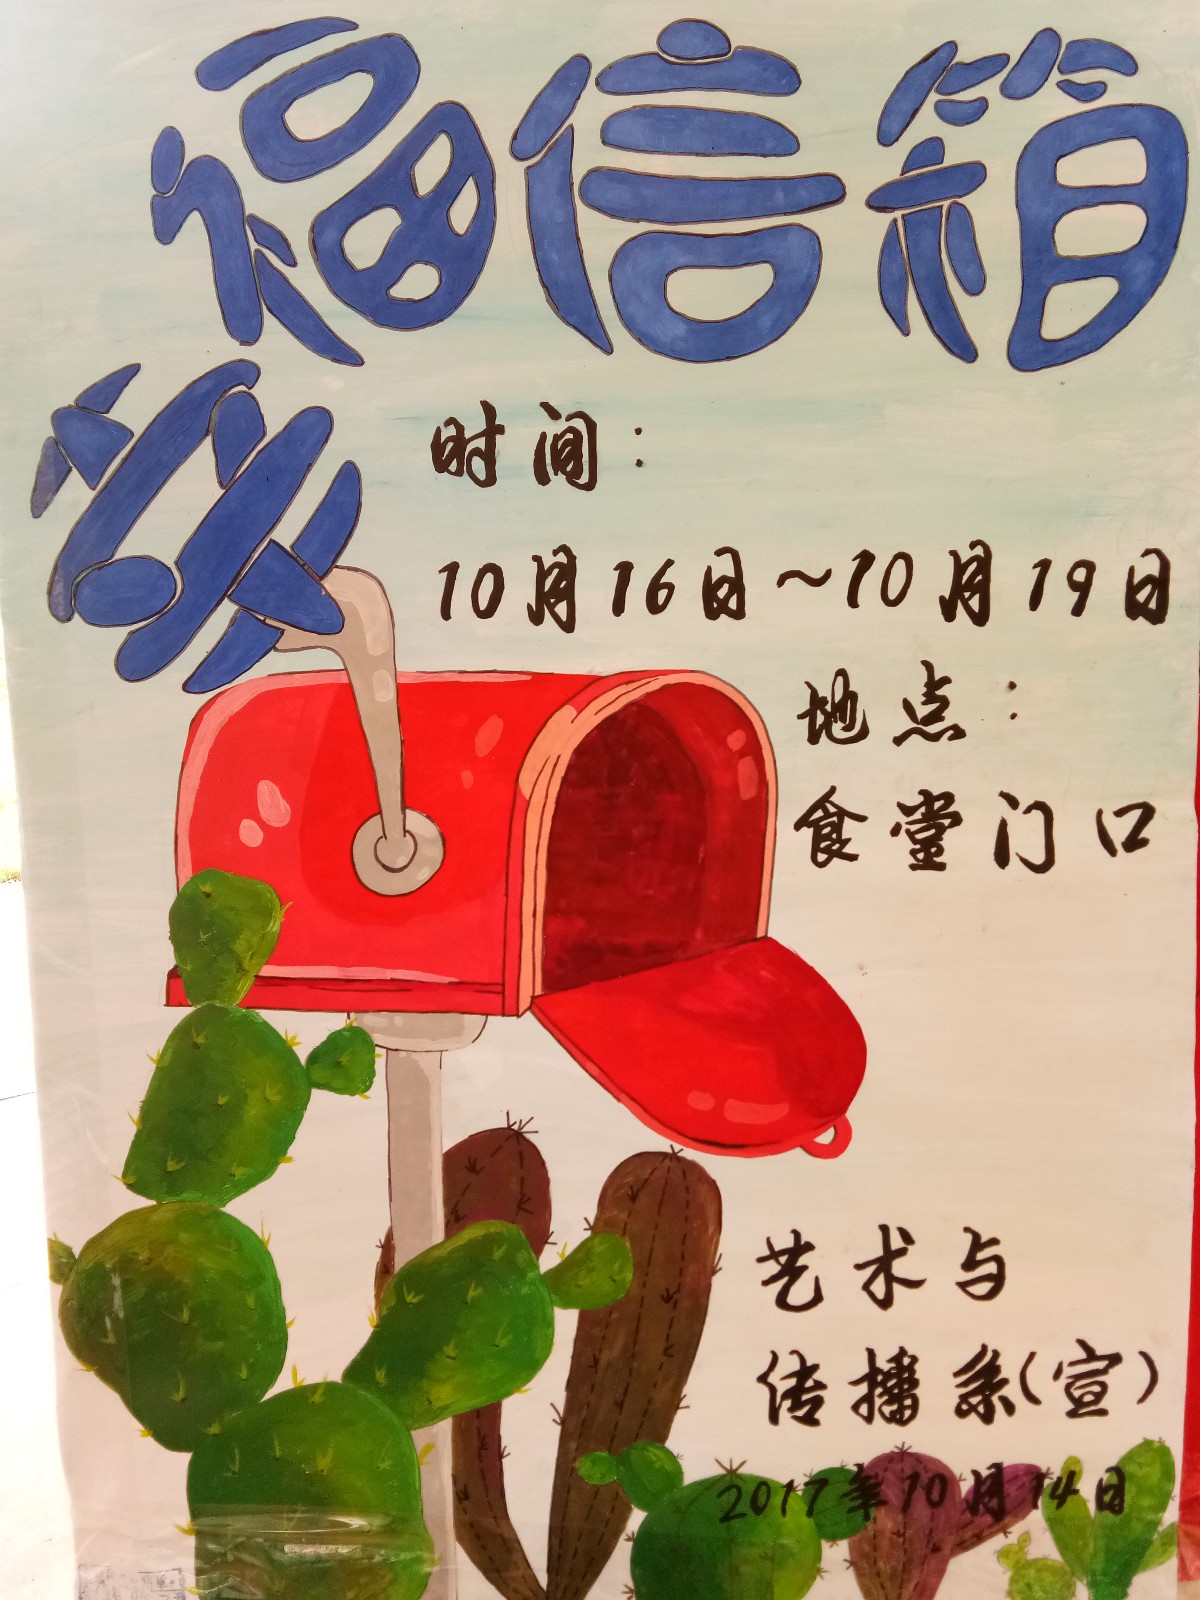 幸福信箱
时间:
10月16日~10月19日
地点:
食堂门口
艺术与
传播系(宣)
2017年10月14日